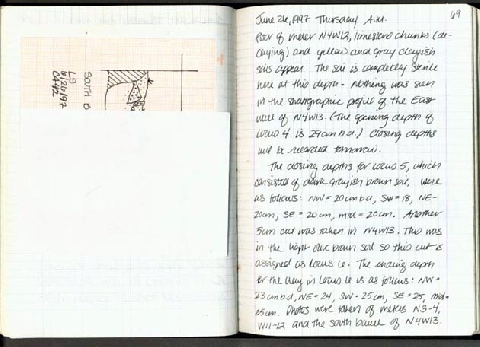 SOUTH
6/26/97
69
June 26, 1997 Thursday A.M.
floor of meter N4W12, limestone chunks (de-
caying) and yellow and gray clayish
soils appear. The soil is completely sterile
here at this depth - nothing was seen
in the stratigraphic profile of the East
balk of N4W13. (The opening depth of
Locus 4 is 29cm b.d.) Closing depths
will be recorded tomorrow.
The closing depths for Locus 5, which
consisted of dark grayish brown soil, were
as follows: NW = 20cm b.d, SW = 18, NE-
20cm, SE = 20cm, mid = 20cm. Another
5cm cut was taken in N4W13. This was
in the light brown soil so this cut is
assigned as Locus 6. The ending depth
for the day in Locus 6 is as follows: NW=
23cm b.d, NE-24, SW-25cm, SE = 25, mid=
25cm. Photos were taken of meters N3-4,
W11-12 and the south baulk of N4W13.